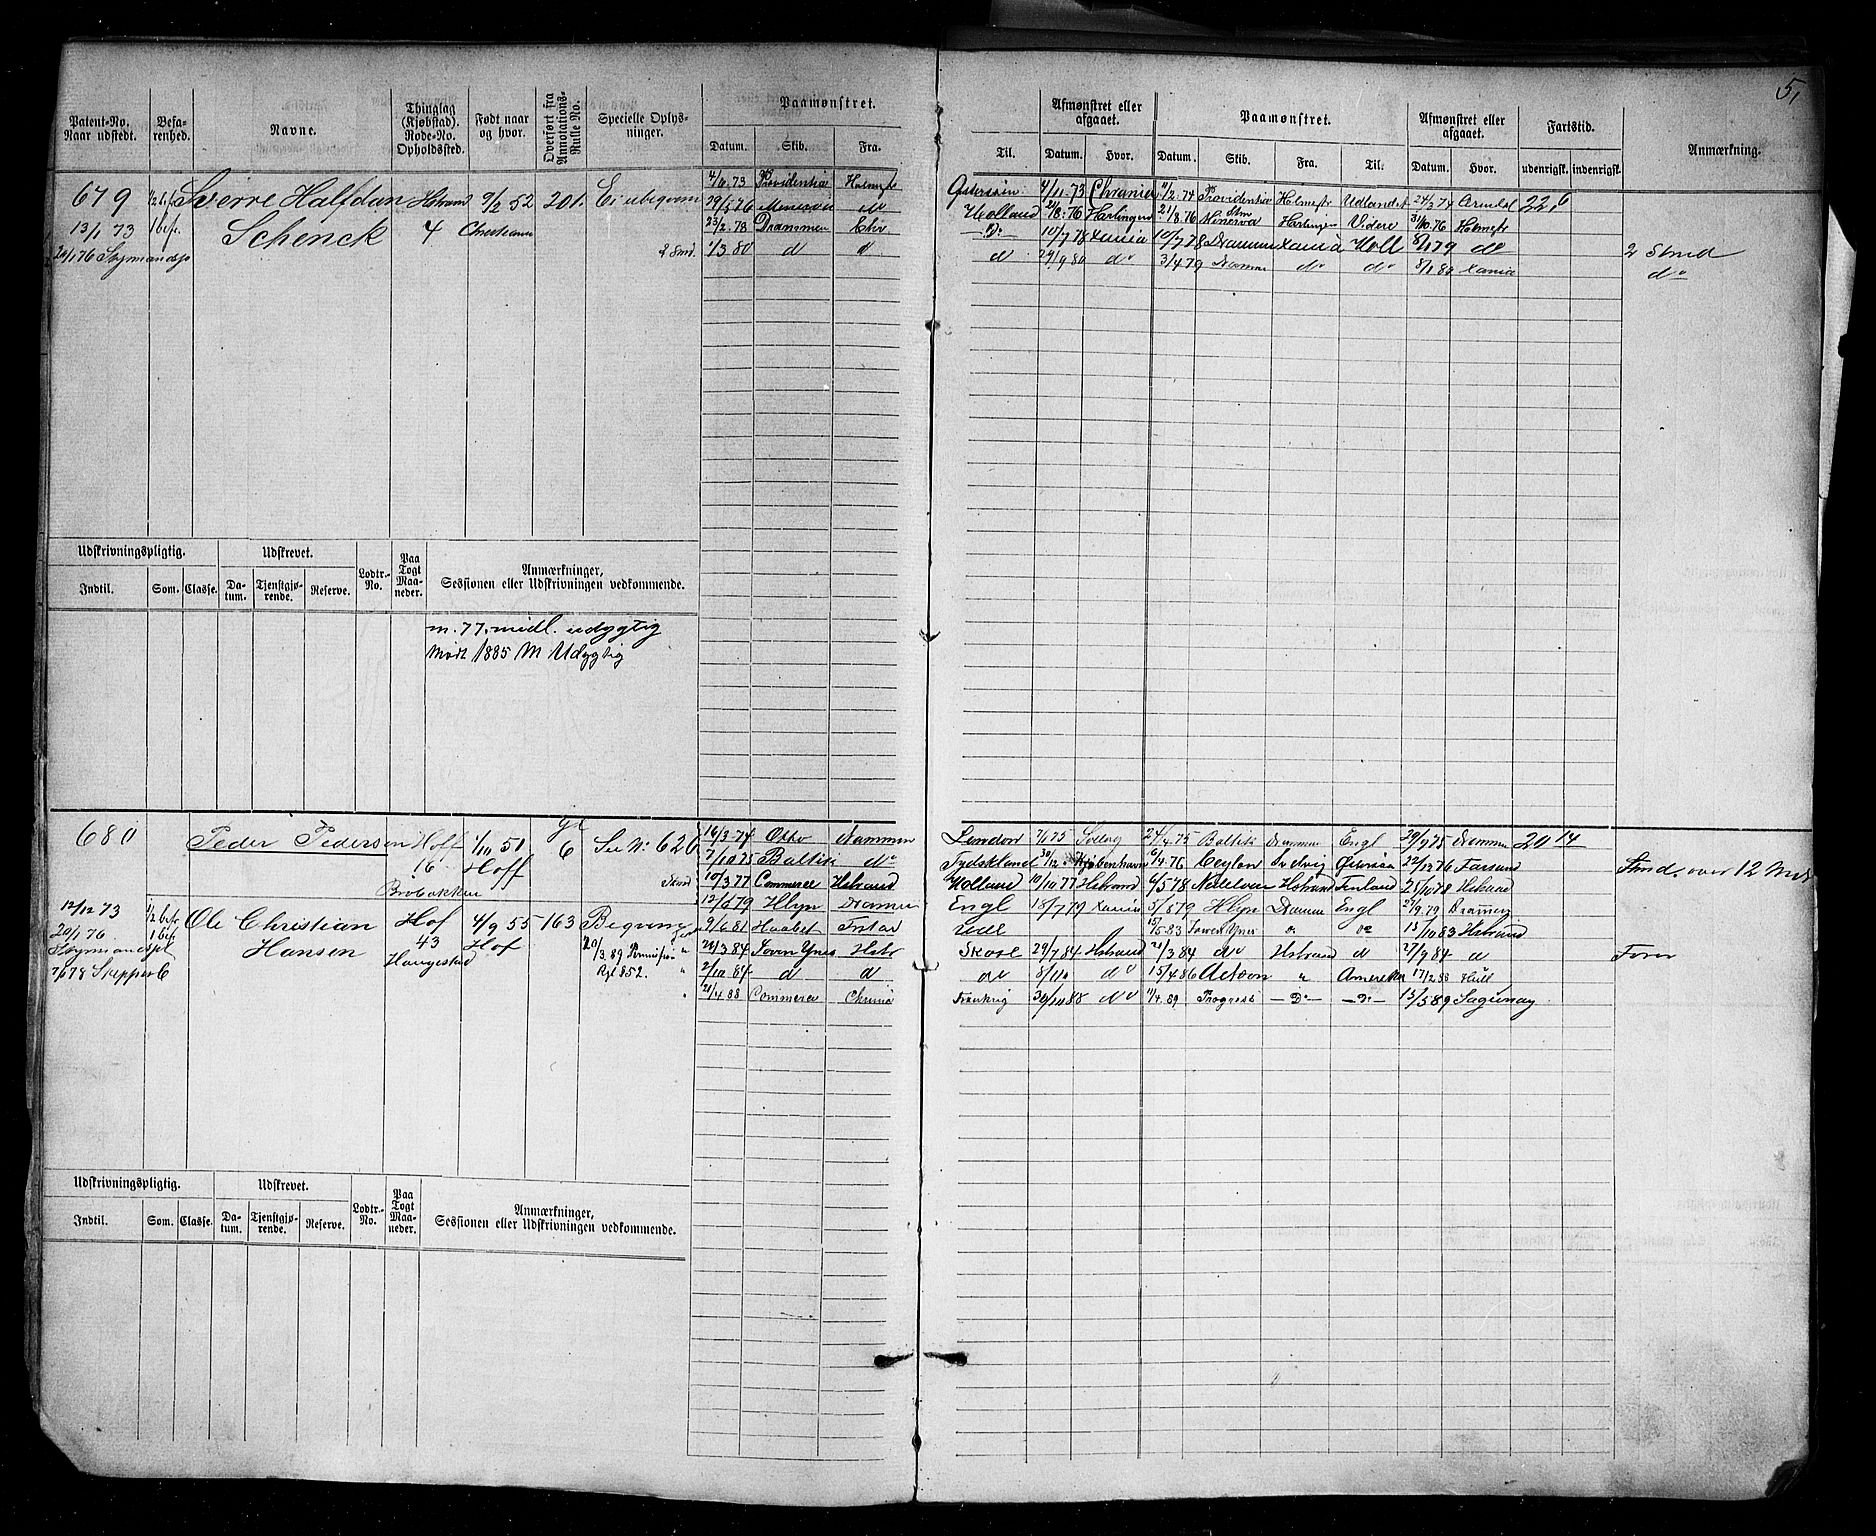 5,
Patent-No. Naar udstedt.
Befarenhed.
Navne.
Thinglag (Kjøbstad). Rode-No. Opholdssted.
Født naar og hvor.
Overført fra Annotations-Rulle No.
Specielle Oplysninger.
Paamønstret.
Datum. Skib. Fra.
Til.
Afmønstret eller afgaaet.
Datum. Hvor.
Paamønstret.
Datum. Skib. Fra. Til.
Afmønstret eller afgaaet.
Datum. Hvor.
Fartstid.
udenrigsk. indenrigsk.
Anmærkning.
679 1/2 bef. Sverre Halfdan Hstrand 9/2 52 201
13/1 73 1 bef. Schenck 4 Christiania
20/1 76 Sømandsp
2 Smd.
4/6 73 Providentia Holmest
29/5 76 Minerva do
23/2 78 Drammen Chr
1/3 80 d d
Østersøen 4/11 73 Chrania 11/2 74 Providentia Holmestr Udlandet 24/3 74 Arendal 22,6
Holland 21/8 76 Harlingen 21/8 76 Stm Minerva Harlingen Videre 31/10 76 Holmestr
Do 10/7 78 Xania 10/7 78 Drammen Xania Holl 8/1 79 do 2 Stmd
d 29/9 80 do 3/4 79 Dramm do do 8/1 80 Xania do
Udskrivningspligtig.
Indtil. Som. Classe.
Udskrevet.
Datum. Tjenstgjørende. Reserve.
Lodtr.-No.
Paa Togt Maaneder.
Anmærkninger, Sessionen eller Udskrivningen vedkommende.
m. 77. midl. udygtig
Mødt 1885 M Udygtig
680 Peder Pedersen Hoff 1/10 51 gl 6 See No 620
16 Hoff
Brobakken
12/12 73 1/2 bef. Ole Christian Hof 4/9 55 163
20/1 76 1 bef. Hansen 43 Hof
Sømandspl Haugestad
7/6 78
20/3 89 Permission
Rgl 852.
16/3 74 Otho Drammen
7/10 75 Baltic do
10/3 77 Commerce Hstrand
12/6 79 Hlyn Drammen
9/6 81 Haabet
24/3 84 Hstr
2/10 84 d d
21/4 88 Commerce Chania
London 7/1 75 24/4 75 Baltic Drammen Engl 29/9 75 Drammen 20 14
Tydskland 30/12 Kjøbenhavn 6/4 76 Ceylon Svelvig Østersøen 22/12 76 Farsund Stmd. over 12 Md
Holland 10/10 77 Hstrand 6/5 78 Hstrand Finland 25/10 78 Hstrand
Engl 18/7 79 Xania 5/8 79 Hlyn Dramm Engl 27/9 79 Drammen
15/5 83 13/10 83 Hstrand
29/7 84 Hstrand 21/3 84 do Hstrand d 27/9 84 d
do 8/10 do 15/4 86 Actæon " Amerika 17/2 88 Hull
Frankrig 30/10 88 do 11/4 89 Progress - Do - - Do - 13/5 89 Saguenay
Udskrivningspligtig.
Indtil. Som. Classe.
Udskrevet.
Datum. Tjenstgjørende. Reserve.
Lodtr.-No.
Paa Togt Maaneder.
Anmærkninger, Sessionen eller Udskrivningen vedkommende.